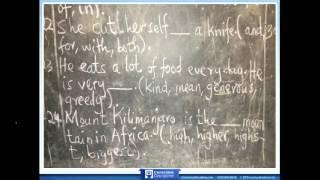 of, in).
22 She cut herself __ a knife. (and, in
for, with, both).
23 He eats a lot of food every day. He
is very __. (kind, mean, generous,
greedy)
24. Mount Kilimanjaro is the __ moun
tain in Africa. (high, higher, highs
t, biggest).